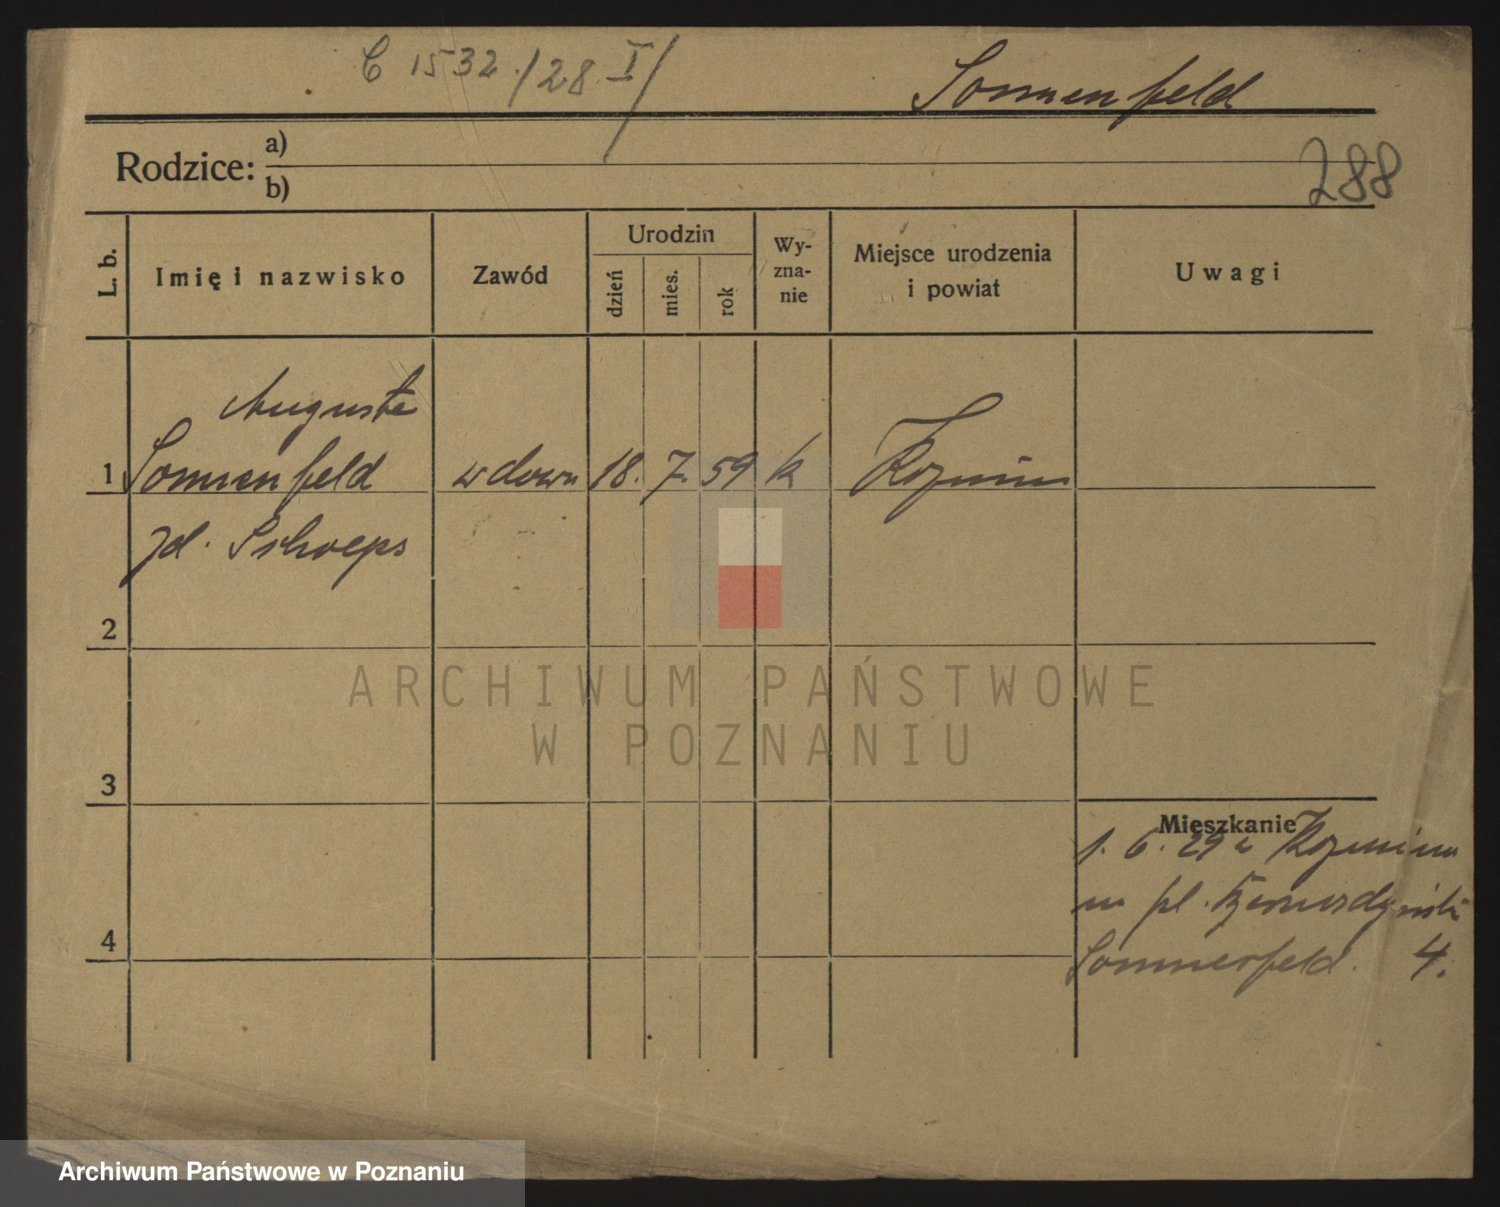 C 1532./28 I/
Sonnenfeld
288
Rodzice: a)
b)
L. b.
Imię i nazwisko
Zawód
Urodzin
dzień
mies.
rok
Wy-
zna-
nie
Miejsce urodzenia
i powiat
Uwagi
Auguste
1 Sonnenfeld wdowa 18. 7. 59 k Kozmin
zd. Schoeps
2
ARCHIWUM PAŃSTWOWE
W POZNANIU
3
Mieszkanie
1. 6. 29 z Kozmina
pl. Bernardyński
4
Sommerfeld. 4.
Archiwum Państwowe w Poznaniu